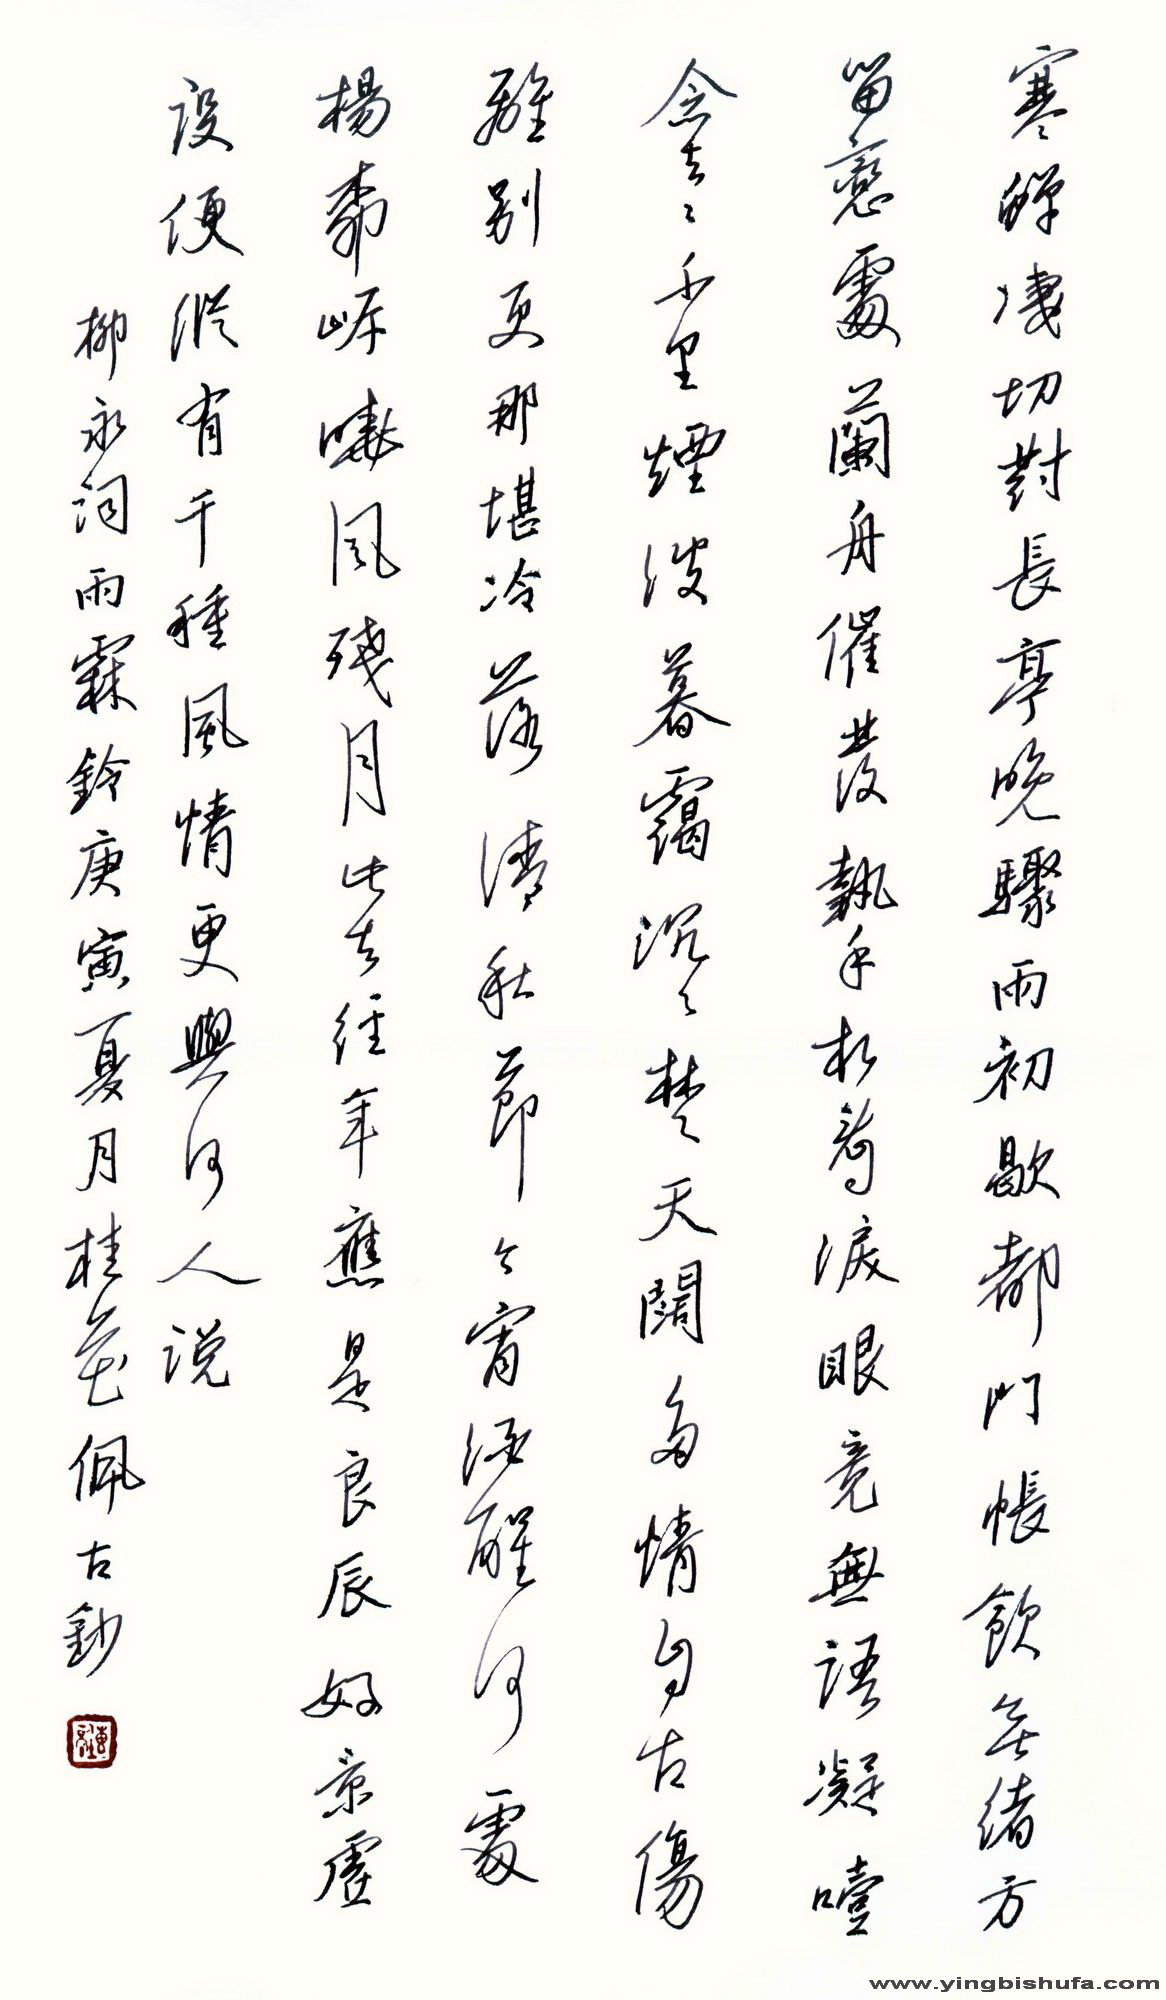 寒蟬凄切對長亭晚驟雨初歇都門帳飲無緒方
留戀處蘭舟催發執手相看淚眼竟無語凝噎
念去々千里煙波暮靄沉々楚天闊多情自古傷
離別更那堪冷落清秋節今宵酒醒何處
楊柳岸曉風殘月此去經年應是良辰好景虛
設便縱有千種風情更與何人說
柳永詞雨霖鈴庚寅夏月桂佩古鈔
www.yingbishufa.com